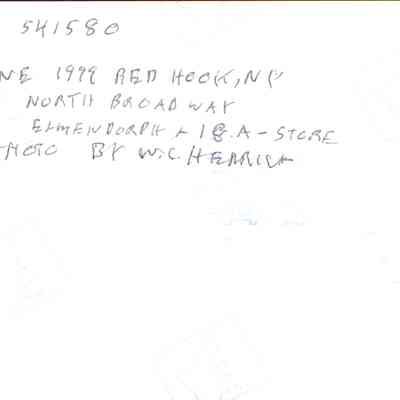 541580
NE 1998 RED HOOK, NY
NORTH BROADWAY
ELMENDORPH + I G.A - STORE
HOTO BY W.C. HERRICK